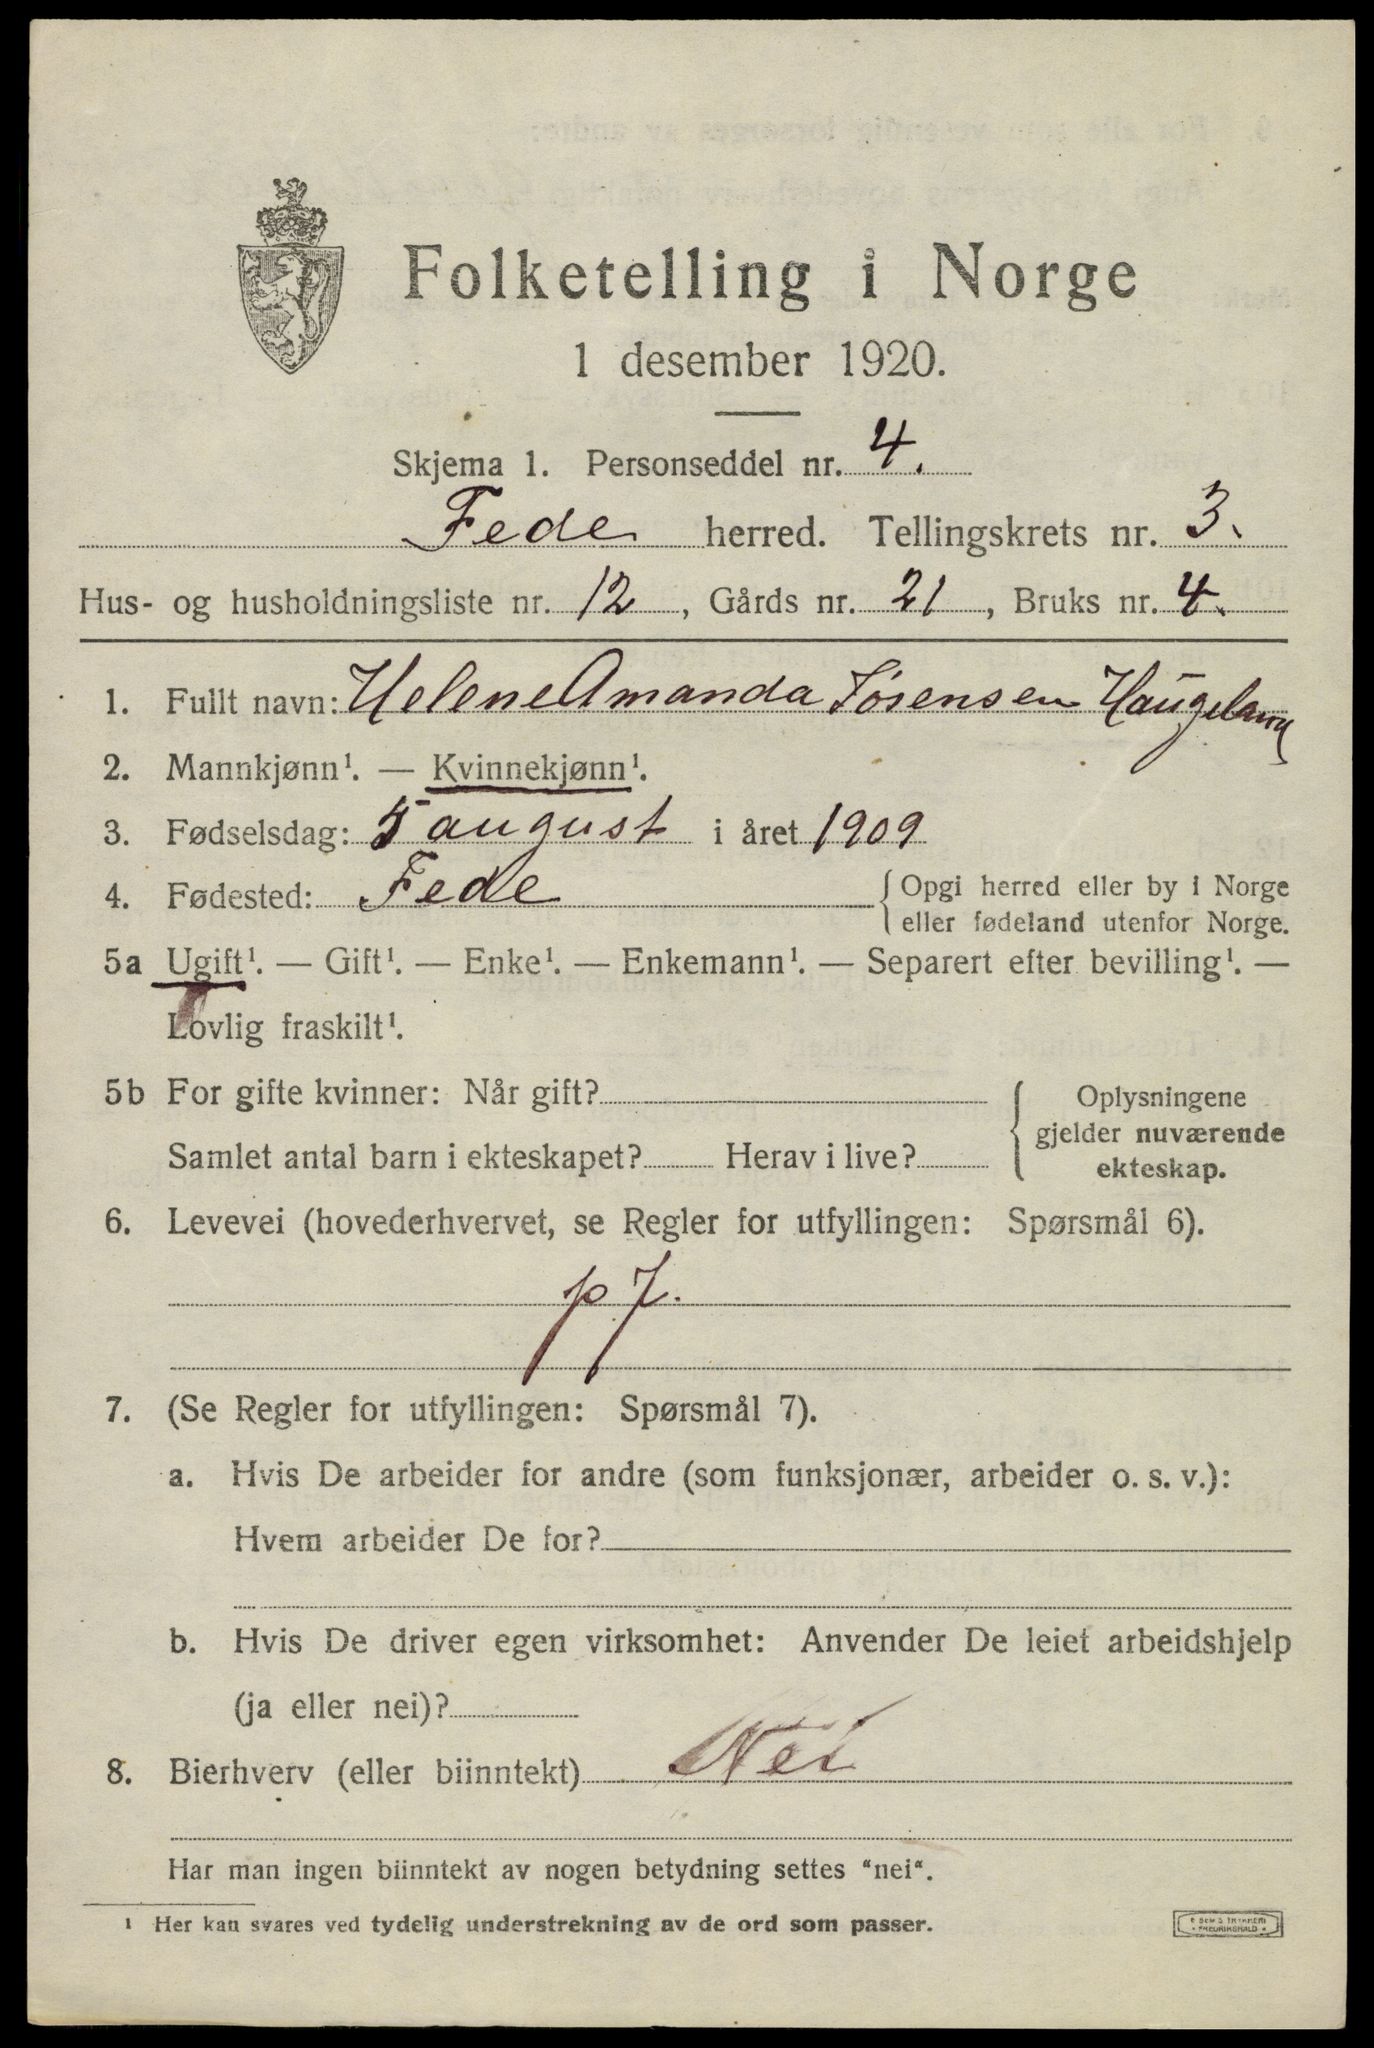 Folketelling i Norge
1 desember 1920.
Skjema 1. Personseddel nr. 4.
Fede herred. Tellingskrets nr. 3.
Hus- og husholdningsliste nr. 12, Gårds nr. 21, Bruks nr. 4.
1. Fullt navn: Helene Amanda Sørensen Haugeland
2. Mannkjønn¹. — Kvinnekjønn¹.
3. Fødselsdag: 5 august i året 1909
4. Fødested: Fede { Opgi herred eller by i Norge
eller fødeland utenfor Norge.
5a Ugift¹. — Gift¹. — Enke¹. — Enkemann¹. — Separert efter bevilling¹. —
Lovlig fraskilt¹.
5b For gifte kvinner: Når gift?
Samlet antal barn i ekteskapet? Herav i live?
{ Oplysningene
gjelder nuværende
ekteskap.
6. Levevei (hovederhvervet, se Regler for utfyllingen: Spørsmål 6).
7. (Se Regler for utfyllingen: Spørsmål 7).
a. Hvis De arbeider for andre (som funksjonær, arbeider o. s. v.):
Hvem arbeider De for?
b. Hvis De driver egen virksomhet: Anvender De leiet arbeidshjelp
(ja eller nei)?
8. Bierhverv (eller biinntekt) Nei
Har man ingen biinntekt av nogen betydning settes "nei".
¹ Her kan svares ved tydelig understrekning av de ord som passer.